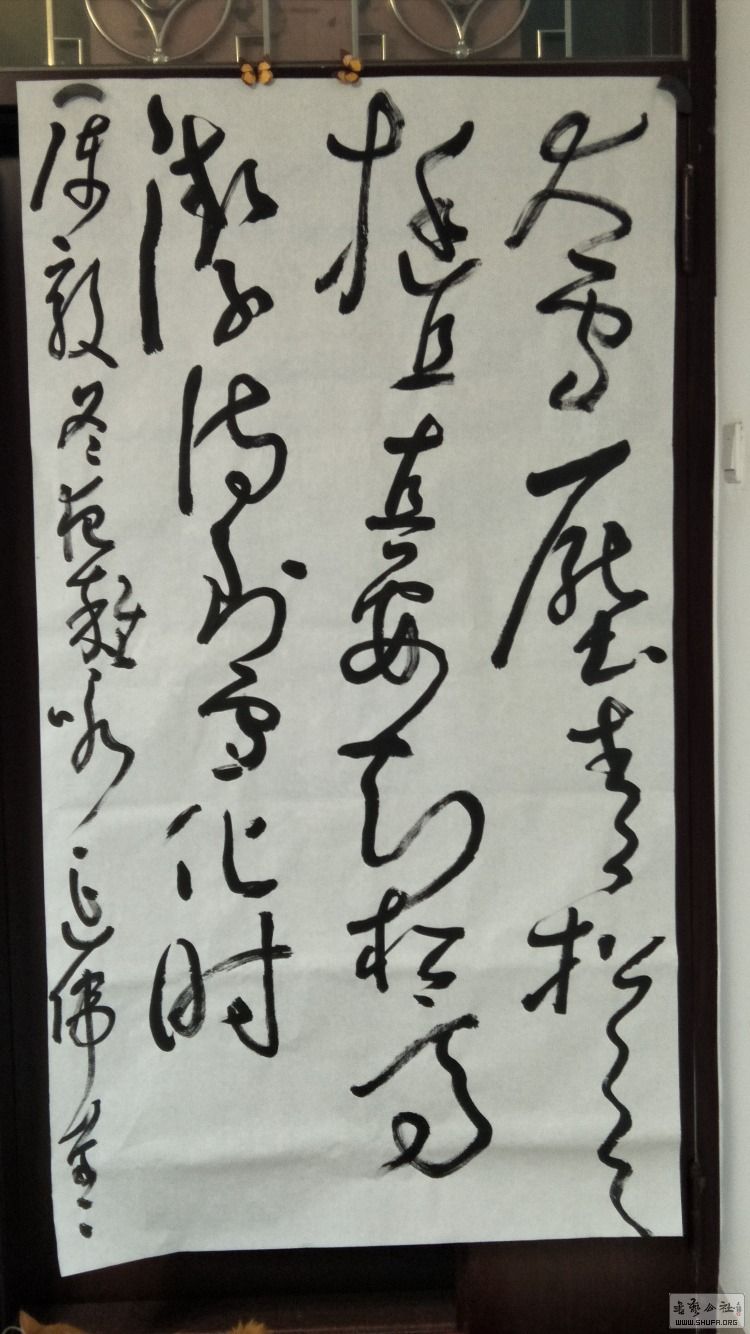 大雪壓青松々々
挺且直要知松高
潔待到雪化时
陈毅冬夜雜咏 延
书艺公社
WWW.SHUFA.ORG